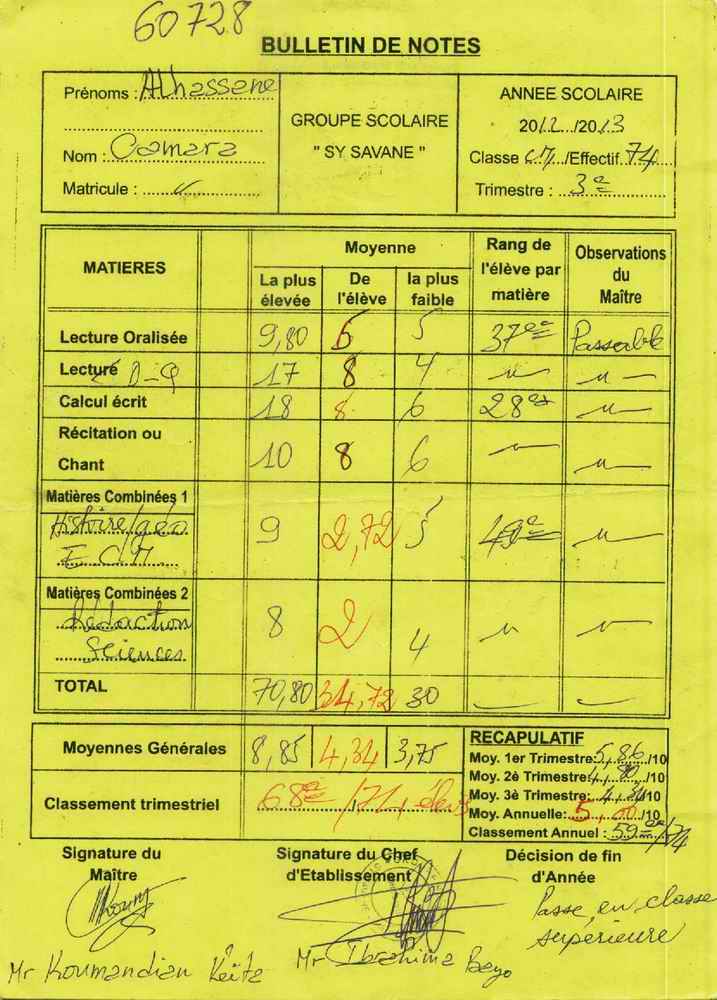 60728
BULLETIN DE NOTES
Prénoms : Alhassane
Nom : Camara
Matricule : "
GROUPE SCOLAIRE
" SY SAVANE "
ANNEE SCOLAIRE
2012/2013
Classe CM/Effectif 74
Trimestre : 3è
MATIERES
Moyenne
La plus élevée
De l'élève
la plus faible
Rang de l'élève par matière
Observations du Maître
Lecture Oralisée 9,80 6 5 37è Passable
Lecture D-Q 17 8 4 " "
Calcul écrit 18 8 6 28è "
Récitation ou Chant 10 8 6 " "
Matières Combinées 1
Histoire/géo 9 2,72 5 49è "
E C M
Matières Combinées 2
Rédaction 8 2 4 " "
Sciences
TOTAL 70,80 34,72 30
Moyennes Générales 8,85 4,34 3,75
Classement trimestriel 68è /71, élèves
RECAPULATIF
Moy. 1er Trimestre: 5,86/10
Moy. 2è Trimestre: 4,80/10
Moy. 3è Trimestre: 4,34/10
Moy. Annuelle: 5,00/10
Classement Annuel : 59è/74
Signature du Maître
Signature du Chef d'Etablissement
Décision de fin d'Année
Passe en classe
supérieure
Mr Koumandian Keïta
Mr Ibrahima Bayo